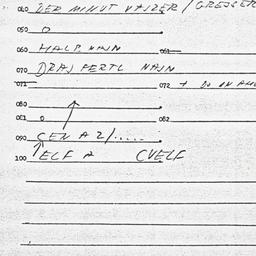 040 DER MINUT VAJZER / GRESSER
050 0
060 HALP NAJN 061
070 DRAJ FERTL NAJN
071 072 + DO ON AHE
080
081 0 082
090 CEN A 2/.....
100 ELF A CVELF